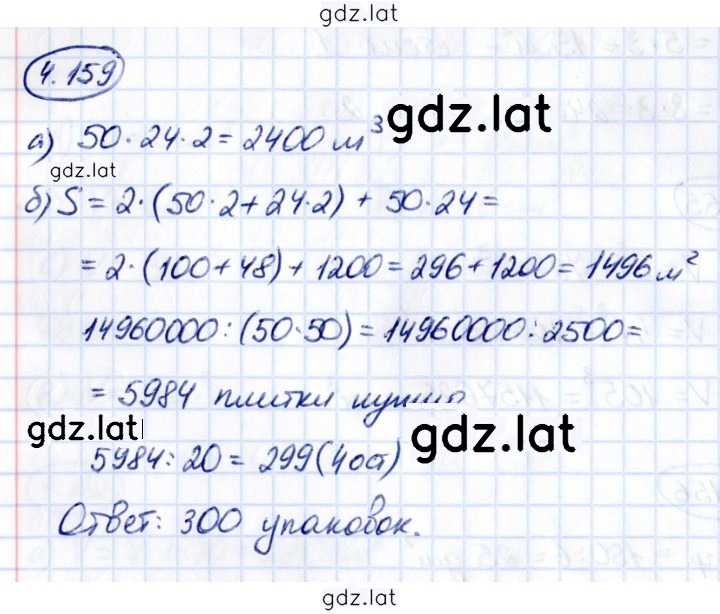 gdz.lat
4.159
а) 50·24·2=2400 м³ gdz.lat
gdz.lat
б) S=2·(50·2+24·2)+50·24=
=2·(100+48)+1200=296+1200=1496 м²
14960000:(50·50)=14960000:2500=
=5984 плитки нужно
gdz.lat gdz.lat
5984:20=299(4ост)
Ответ: 300 упаковок.
gdz.lat